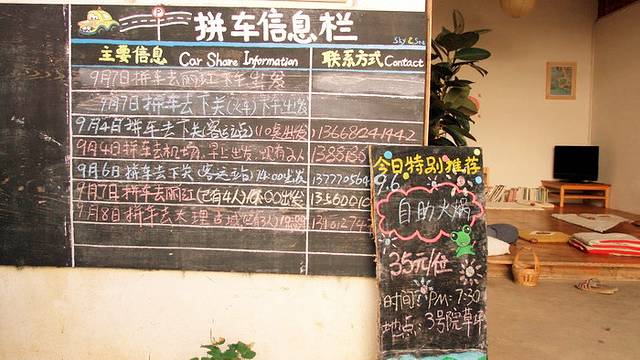 拼车信息栏
Sky & Sea
主要信息 Car Share Information 联系方式 Contact
9月7日拼车去丽江下午出发
9月7日拼车去下关(火车)下午出发
9月4日拼车去下关(客运站)10:00出发 13668241442
9月4日拼车去机场,早上出发,现有2人
9月6日拼车去下关(客运站)14:00出发
9月7日拼车去丽江(已有4人) 出发
9月8日拼车去大理古城
今日特别推荐
9.6
自助火锅
35元/位
时间: PM: 7:30
地点: 3号院草坪